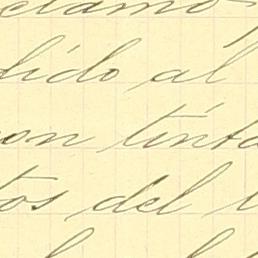 clamo
dido al
con tinta
tos del